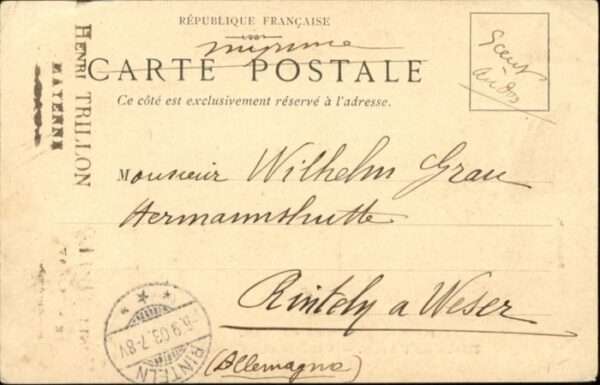 RÉPUBLIQUE FRANÇAISE
imprimé
CARTE POSTALE
Ce côté est exclusivement réservé à l'adresse.
5 cent
au dos
HENRI TRILLON
MAYENNE
Monsieur Wilhelm Grau
Hermannshutte
Rinteln a Weser
(Allemagne)
RINTELN
9.03.7-8V